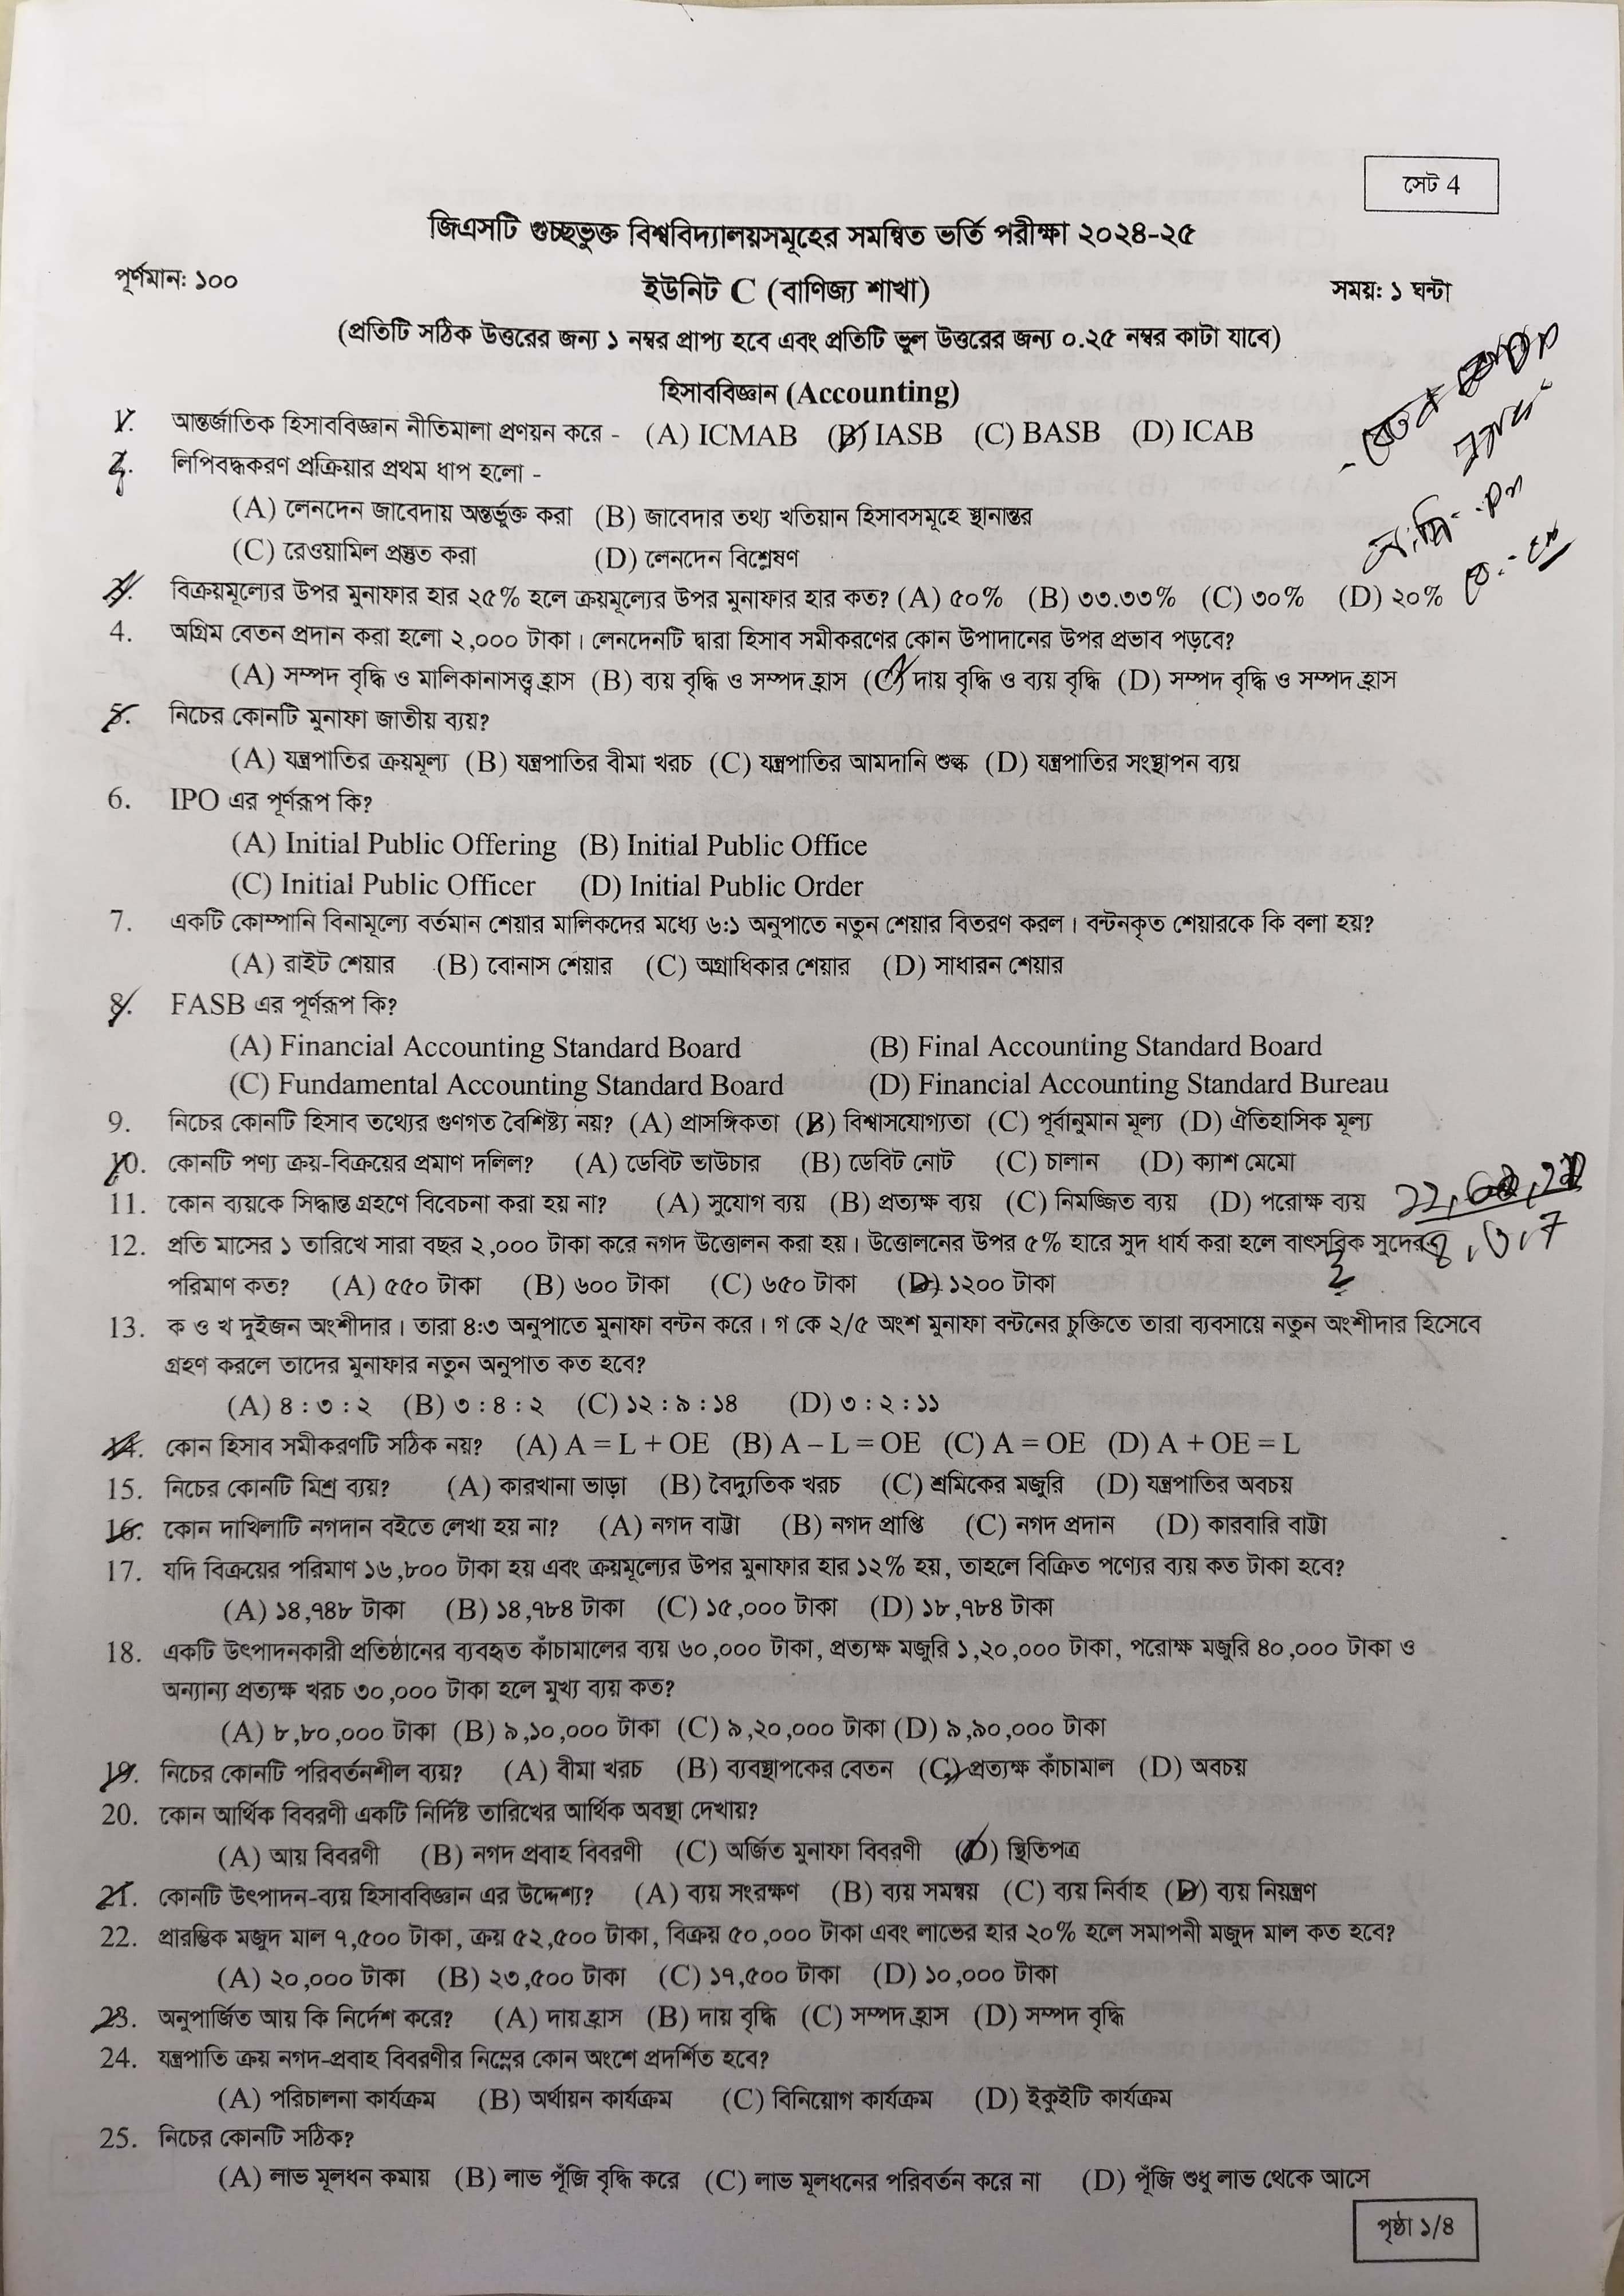 সেট 4
জিএসটি গুচ্ছভুক্ত বিশ্ববিদ্যালয়সমূহের সমন্বিত ভর্তি পরীক্ষা ২০২৪-২৫
পূর্ণমান: ১০০ ইউনিট C (বাণিজ্য শাখা) সময়: ১ ঘন্টা
(প্রতিটি সঠিক উত্তরের জন্য ১ নম্বর প্রাপ্য হবে এবং প্রতিটি ভুল উত্তরের জন্য ০.২৫ নম্বর কাটা যাবে)
হিসাববিজ্ঞান (Accounting)
1. আন্তর্জাতিক হিসাববিজ্ঞান নীতিমালা প্রণয়ন করে - (A) ICMAB (B) IASB (C) BASB (D) ICAB
2. লিপিবদ্ধকরণ প্রক্রিয়ার প্রথম ধাপ হলো -
(A) লেনদেন জাবেদায় অন্তর্ভুক্ত করা (B) জাবেদার তথ্য খতিয়ান হিসাবসমূহে স্থানান্তর
(C) রেওয়ামিল প্রস্তুত করা (D) লেনদেন বিশ্লেষণ
3. বিক্রয়মূল্যের উপর মুনাফার হার ২৫% হলে ক্রয়মূল্যের উপর মুনাফার হার কত? (A) ৫০% (B) ৩৩.৩৩% (C) ৩০% (D) ২০%
4. অগ্রিম বেতন প্রদান করা হলো ২,০০০ টাকা। লেনদেনটি দ্বারা হিসাব সমীকরণের কোন উপাদানের উপর প্রভাব পড়বে?
(A) সম্পদ বৃদ্ধি ও মালিকানাসত্ত্ব হ্রাস (B) ব্যয় বৃদ্ধি ও সম্পদ হ্রাস (C) দায় বৃদ্ধি ও ব্যয় বৃদ্ধি (D) সম্পদ বৃদ্ধি ও সম্পদ হ্রাস
5. নিচের কোনটি মুনাফা জাতীয় ব্যয়?
(A) যন্ত্রপাতির ক্রয়মূল্য (B) যন্ত্রপাতির বীমা খরচ (C) যন্ত্রপাতির আমদানি শুল্ক (D) যন্ত্রপাতির সংস্থাপন ব্যয়
6. IPO এর পূর্ণরূপ কি?
(A) Initial Public Offering (B) Initial Public Office
(C) Initial Public Officer (D) Initial Public Order
7. একটি কোম্পানি বিনামূল্যে বর্তমান শেয়ার মালিকদের মধ্যে ৬:১ অনুপাতে নতুন শেয়ার বিতরণ করল। বন্টনকৃত শেয়ারকে কি বলা হয়?
(A) রাইট শেয়ার (B) বোনাস শেয়ার (C) অগ্রাধিকার শেয়ার (D) সাধারন শেয়ার
8. FASB এর পূর্ণরূপ কি?
(A) Financial Accounting Standard Board (B) Final Accounting Standard Board
(C) Fundamental Accounting Standard Board (D) Financial Accounting Standard Bureau
9. নিচের কোনটি হিসাব তথ্যের গুণগত বৈশিষ্ট্য নয়? (A) প্রাসঙ্গিকতা (B) বিশ্বাসযোগ্যতা (C) পূর্বানুমান মূল্য (D) ঐতিহাসিক মূল্য
10. কোনটি পণ্য ক্রয়-বিক্রয়ের প্রমাণ দলিল? (A) ডেবিট ভাউচার (B) ডেবিট নোট (C) চালান (D) ক্যাশ মেমো
11. কোন ব্যয়কে সিদ্ধান্ত গ্রহণে বিবেচনা করা হয় না? (A) সুযোগ ব্যয় (B) প্রত্যক্ষ ব্যয় (C) নিমজ্জিত ব্যয় (D) পরোক্ষ ব্যয়
12. প্রতি মাসের ১ তারিখে সারা বছর ২,০০০ টাকা করে নগদ উত্তোলন করা হয়। উত্তোলনের উপর ৫% হারে সুদ ধার্য করা হলে বাৎসরিক সুদের
পরিমাণ কত? (A) ৫৫০ টাকা (B) ৬০০ টাকা (C) ৬৫০ টাকা (D) ১২০০ টাকা
13. ক ও খ দুইজন অংশীদার। তারা ৪:৩ অনুপাতে মুনাফা বন্টন করে। গ কে ২/৫ অংশ মুনাফা বন্টনের চুক্তিতে তারা ব্যবসায়ে নতুন অংশীদার হিসেবে
গ্রহণ করলে তাদের মুনাফার নতুন অনুপাত কত হবে?
(A) ৪ : ৩ : ২ (B) ৩ : ৪ : ২ (C) ১২ : ৯ : ১৪ (D) ৩ : ২ : ১১
14. কোন হিসাব সমীকরণটি সঠিক নয়? (A) A = L + OE (B) A – L = OE (C) A = OE (D) A + OE = L
15. নিচের কোনটি মিশ্র ব্যয়? (A) কারখানা ভাড়া (B) বৈদ্যুতিক খরচ (C) শ্রমিকের মজুরি (D) যন্ত্রপাতির অবচয়
16. কোন দাখিলাটি নগদান বইতে লেখা হয় না? (A) নগদ বাট্টা (B) নগদ প্রাপ্তি (C) নগদ প্রদান (D) কারবারি বাট্টা
17. যদি বিক্রয়ের পরিমাণ ১৬,৮০০ টাকা হয় এবং ক্রয়মূল্যের উপর মুনাফার হার ১২% হয়, তাহলে বিক্রিত পণ্যের ব্যয় কত টাকা হবে?
(A) ১৪,৭৪৮ টাকা (B) ১৪,৭৮৪ টাকা (C) ১৫,০০০ টাকা (D) ১৮,৭৮৪ টাকা
18. একটি উৎপাদনকারী প্রতিষ্ঠানের ব্যবহৃত কাঁচামালের ব্যয় ৬০,০০০ টাকা, প্রত্যক্ষ মজুরি ১,২০,০০০ টাকা, পরোক্ষ মজুরি ৪০,০০০ টাকা ও
অন্যান্য প্রত্যক্ষ খরচ ৩০,০০০ টাকা হলে মুখ্য ব্যয় কত?
(A) ৮,৮০,০০০ টাকা (B) ৯,১০,০০০ টাকা (C) ৯,২০,০০০ টাকা (D) ৯,৯০,০০০ টাকা
19. নিচের কোনটি পরিবর্তনশীল ব্যয়? (A) বীমা খরচ (B) ব্যবস্থাপকের বেতন (C) প্রত্যক্ষ কাঁচামাল (D) অবচয়
20. কোন আর্থিক বিবরণী একটি নির্দিষ্ট তারিখের আর্থিক অবস্থা দেখায়?
(A) আয় বিবরণী (B) নগদ প্রবাহ বিবরণী (C) অর্জিত মুনাফা বিবরণী (D) স্থিতিপত্র
21. কোনটি উৎপাদন-ব্যয় হিসাববিজ্ঞান এর উদ্দেশ্য? (A) ব্যয় সংরক্ষণ (B) ব্যয় সমন্বয় (C) ব্যয় নির্বাহ (D) ব্যয় নিয়ন্ত্রণ
22. প্রারম্ভিক মজুদ মাল ৭,৫০০ টাকা, ক্রয় ৫২,৫০০ টাকা, বিক্রয় ৫০,০০০ টাকা এবং লাভের হার ২০% হলে সমাপনী মজুদ মাল কত হবে?
(A) ২০,০০০ টাকা (B) ২৩,৫০০ টাকা (C) ১৭,৫০০ টাকা (D) ১০,০০০ টাকা
23. অনুপার্জিত আয় কি নির্দেশ করে? (A) দায় হ্রাস (B) দায় বৃদ্ধি (C) সম্পদ হ্রাস (D) সম্পদ বৃদ্ধি
24. যন্ত্রপাতি ক্রয় নগদ-প্রবাহ বিবরণীর নিম্নের কোন অংশে প্রদর্শিত হবে?
(A) পরিচালনা কার্যক্রম (B) অর্থায়ন কার্যক্রম (C) বিনিয়োগ কার্যক্রম (D) ইকুইটি কার্যক্রম
25. নিচের কোনটি সঠিক?
(A) লাভ মূলধন কমায় (B) লাভ পূঁজি বৃদ্ধি করে (C) লাভ মূলধনের পরিবর্তন করে না (D) পূঁজি শুধু লাভ থেকে আসে
পৃষ্ঠা ১/৪